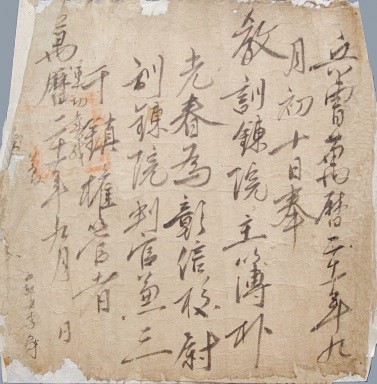 兵曹萬曆二十一年九
月初十日奉
教訓鍊院主簿朴
光春為彰信校尉
訓鍊院判官兼三
千鎮權管者
萬曆二十一年九月 日